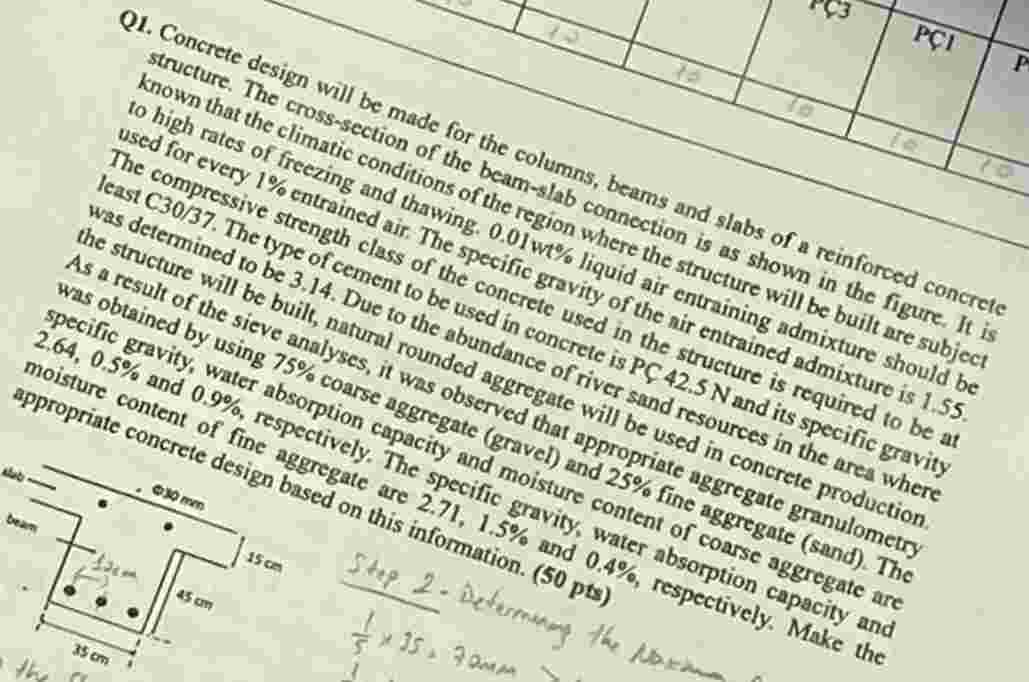 PÇ3
PÇ1
P
10
10
10
10
10
Q1. Concrete design will be made for the columns, beams and slabs of a reinforced concrete
structure. The cross-section of the beam-slab connection is as shown in the figure. It is
known that the climatic conditions of the region where the structure will be built are subject
to high rates of freezing and thawing. 0.01wt% liquid air entraining admixture should be
used for every 1% entrained air. The specific gravity of the air entrained admixture is 1.55.
The compressive strength class of the concrete used in the structure is required to be at
least C30/37. The type of cement to be used in concrete is PÇ 42.5 N and its specific gravity
was determined to be 3.14. Due to the abundance of river sand resources in the area where
the structure will be built, natural rounded aggregate will be used in concrete production.
As a result of the sieve analyses, it was observed that appropriate aggregate granulometry
was obtained by using 75% coarse aggregate (gravel) and 25% fine aggregate (sand). The
specific gravity, water absorption capacity and moisture content of coarse aggregate are
2.64, 0.5% and 0.9%, respectively. The specific gravity, water absorption capacity and
moisture content of fine aggregate are 2.71, 1.5% and 0.4%, respectively. Make the
appropriate concrete design based on this information. (50 pts)
slab
Φ30 mm
beam
15 cm
12cm
45 cm
35 cm
Step 2 - Determining the
1/5 x 35 = 70mm >
1
the